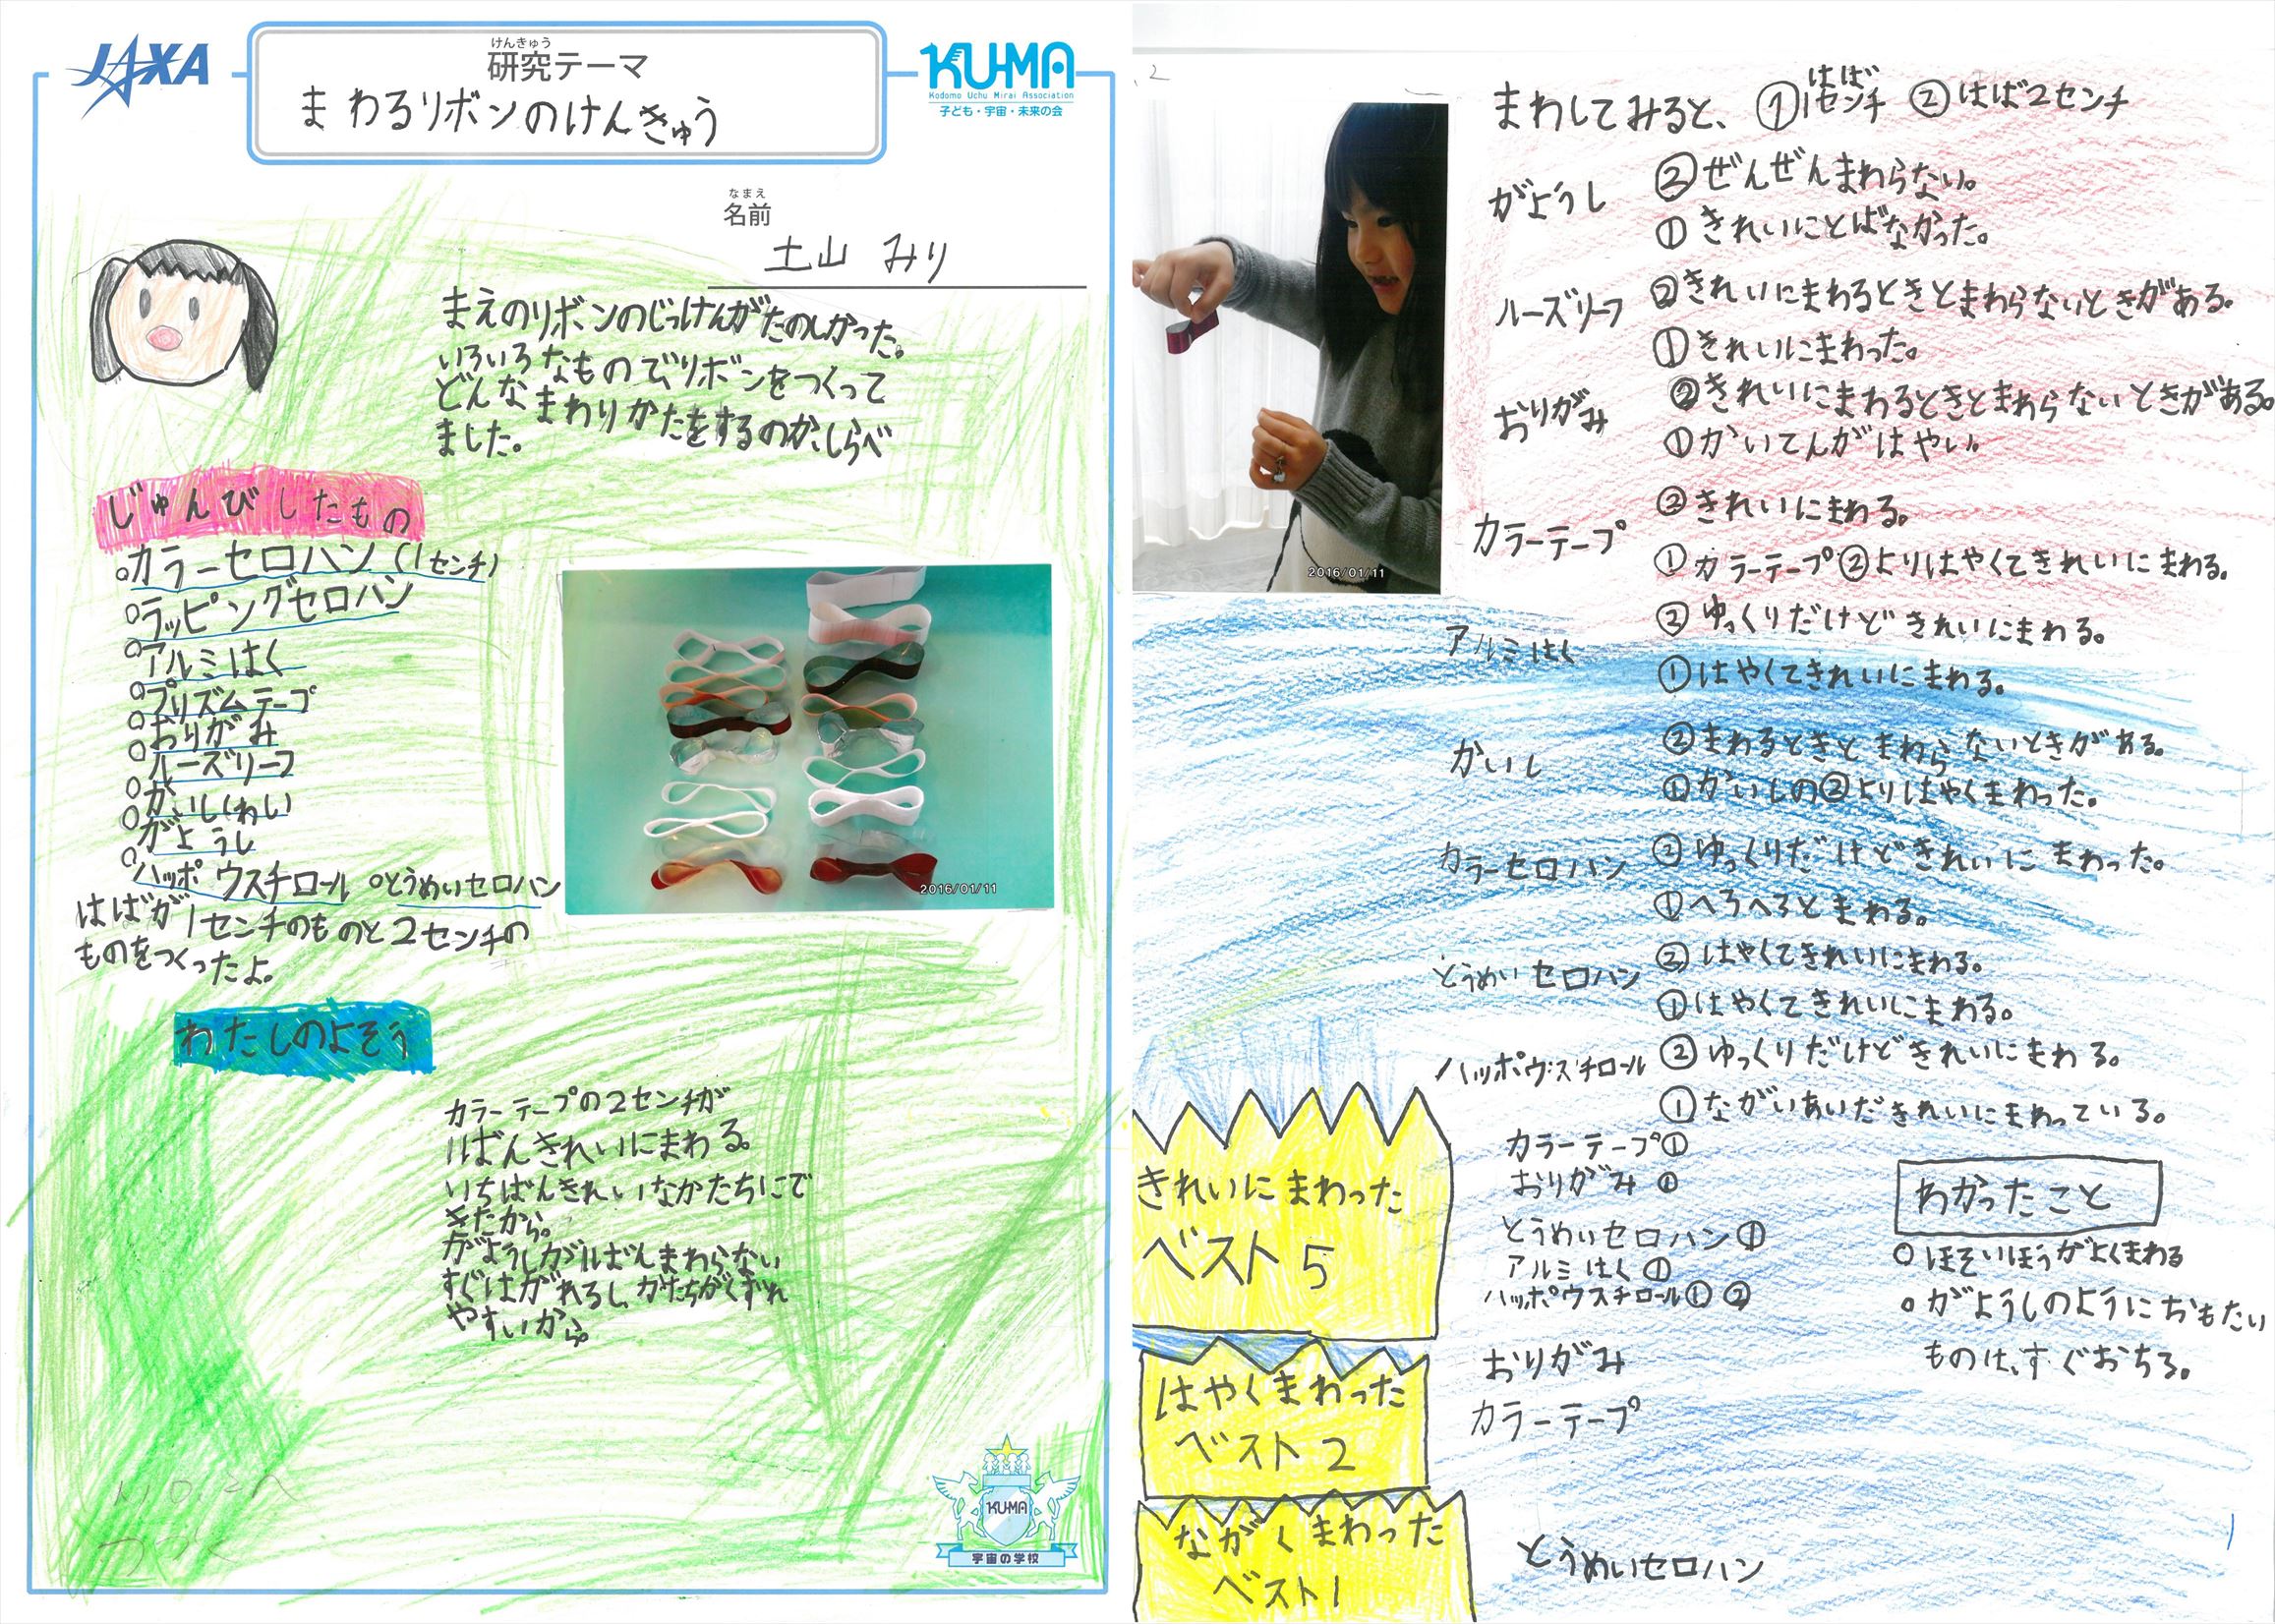 JAXA
けんきゅう
研究テーマ
まわるリボンのけんきゅう
KU-MA
Kodomo Uchu Mirai Association
子ども・宇宙・未来の会
なまえ
名前
土山 みり
まえのリボンのじっけんがたのしかった。
いろいろなもので、リボンをつくって
どんなまわりかたをするのか、しらべ
ました。
じゅんびしたもの
○カラーセロハン(1センチ)
○ラッピングセロハン
○アルミはく
○プリズムテープ
○おりがみ
○ルーズリーフ
○かいし
○がようし
○ハッポウスチロール ○とうめいセロハン
はばが1センチのものと2センチの
ものをつくったよ。
2016/01/11
わたしのよそう
カラーテープの2センチが
1ばんきれいにまわる。
いちばんきれいなかたちにで
きたから。
がようしが1ばんまわらない
すぐはがれるし、かたちがくずれ
やすいから。
つづく
KU-MA
宇宙の学校
2
2016/01/11
まわしてみると、 ①はば1センチ ②はば2センチ
がようし ②ぜんぜんまわらない。
①きれいにとばなかった。
ルーズリーフ ②きれいにまわるときとまわらないときがある。
①きれいにまわった。
おりがみ ②きれいにまわるときとまわらないときがある。
①かいてんがはやい。
カラーテープ ②きれいにまわる。
①カラーテープ②よりはやくてきれいにまわる。
アルミはく ②ゆっくりだけどきれいにまわる。
①はやくてきれいにまわる。
かいし ②まわるときとまわらないときがある。
①かいしの②よりはやくまわった。
カラーセロハン ②ゆっくりだけどきれいにまわった。
①へろへろとまわる。
とうめいセロハン ②はやくてきれいにまわる。
①はやくてきれいにまわる。
ハッポウスチロール ②ゆっくりだけどきれいにまわる。
①ながいあいだきれいにまわっている。
きれいにまわった
ベスト5
カラーテープ①
おりがみ①
とうめいセロハン①
アルミはく①
ハッポウスチロール①②
はやくまわった
ベスト2
おりがみ
カラーテープ
ながくまわった
ベスト1
とうめいセロハン
わかったこと
○ほそいほうがよくまわる
○がようしのようにおもたい
ものは、すぐおちる。